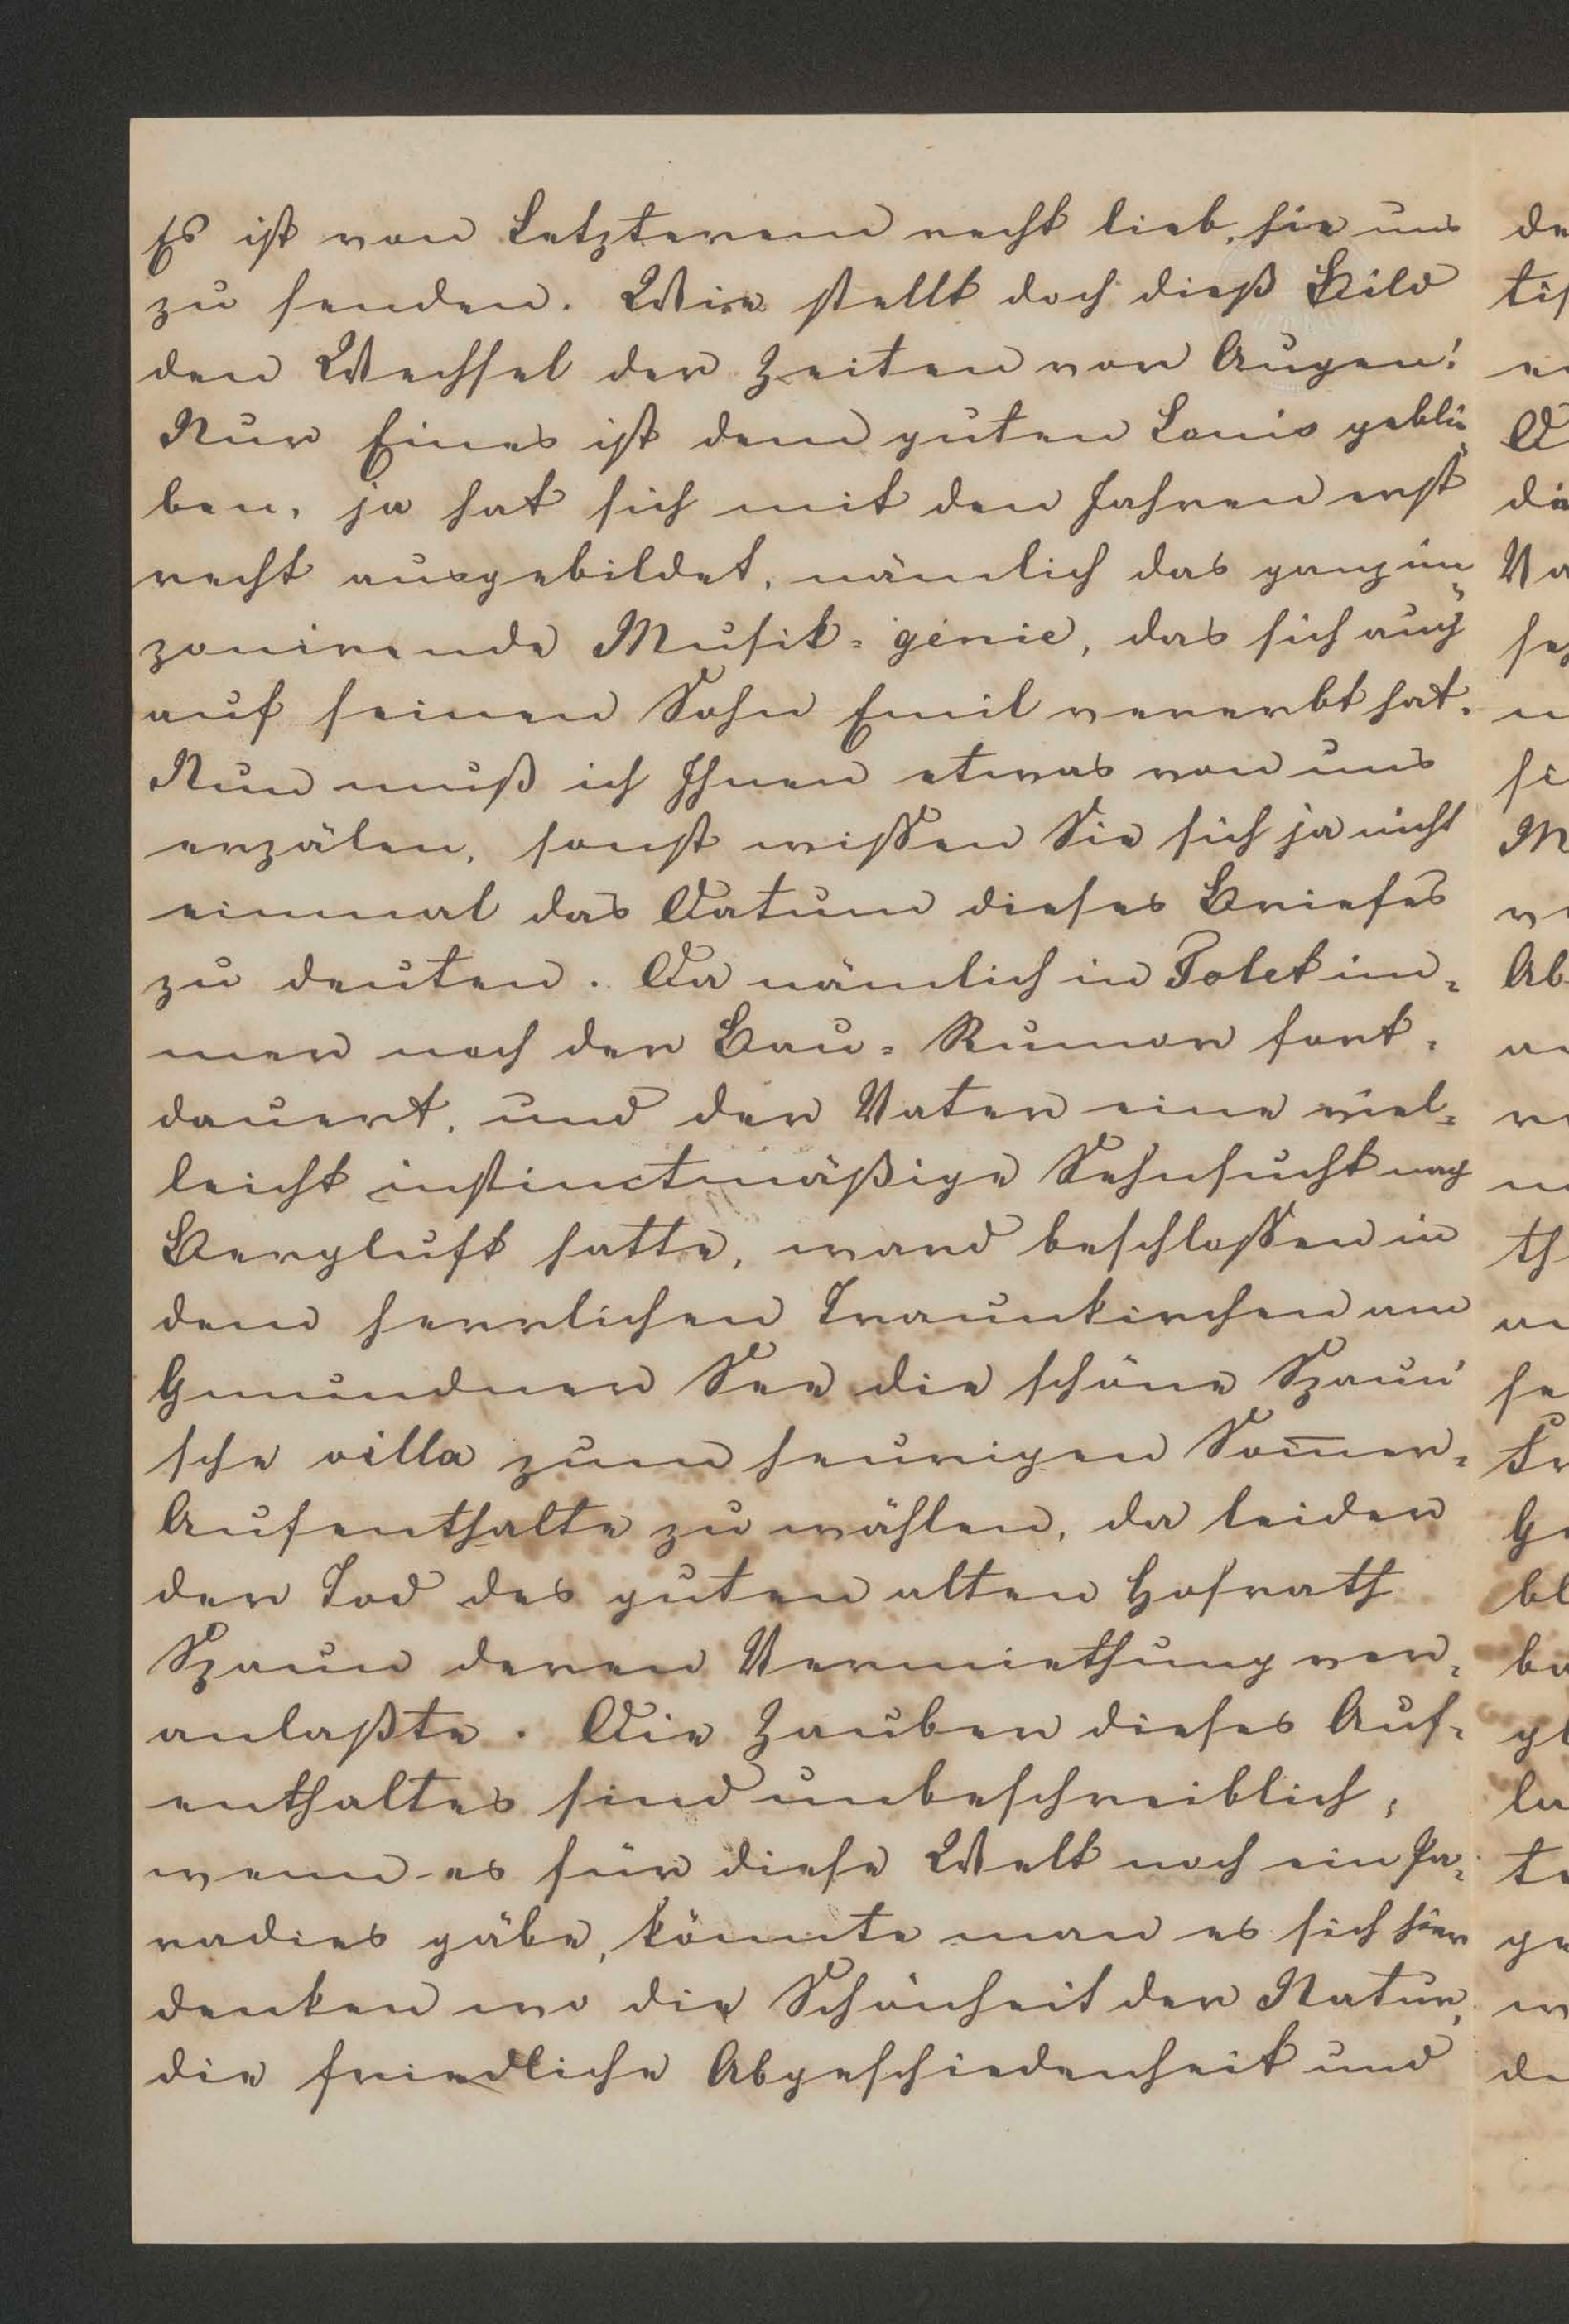 Es ist von Letzterem recht lieb, sie uns
zu senden. Wie stellt doch dieß Bild
den Wechsel der Zeiten vor Augen!
Nur Eines ist dem guten Louis geblie-
ben, ja hat sich mit den Jahren erst
recht ausgebildet, nämlich das
Musik-génie, das sich auch
auf seinen Sohn Emil vererbt hat.
Nun muß ich Ihnen etwas von uns
erzälen, sonst wissen Sie sich ja nicht
einmal das Datum dieses Briefes
zu deuten. Da nämlich in Tolet im-
mer noch der Bau-Rumor fort-
dauert, und der Vater eine viel-
leicht instinctmäßige Sehnsucht nach
Bergluft hatte, ward beschlossen in
dem herrlichen Traunkirchen am
Gmundner See die schöne Spaun'
sche villa zum heurigen Som̅er-
Aufenthalte zu wählen, da leider
der Tod des guten alten Hofrath
Spaun deren Vermiethung ver-
anlaßte. Die Zauber dieses Auf-
enthaltes sind unbeschreiblich;
wenn es für diese Welt noch ein Pa-
radies gäbe, könnte man es sich hier
denken wo die Schönheit der Natur,
die friedliche Abgeschiedenheit und